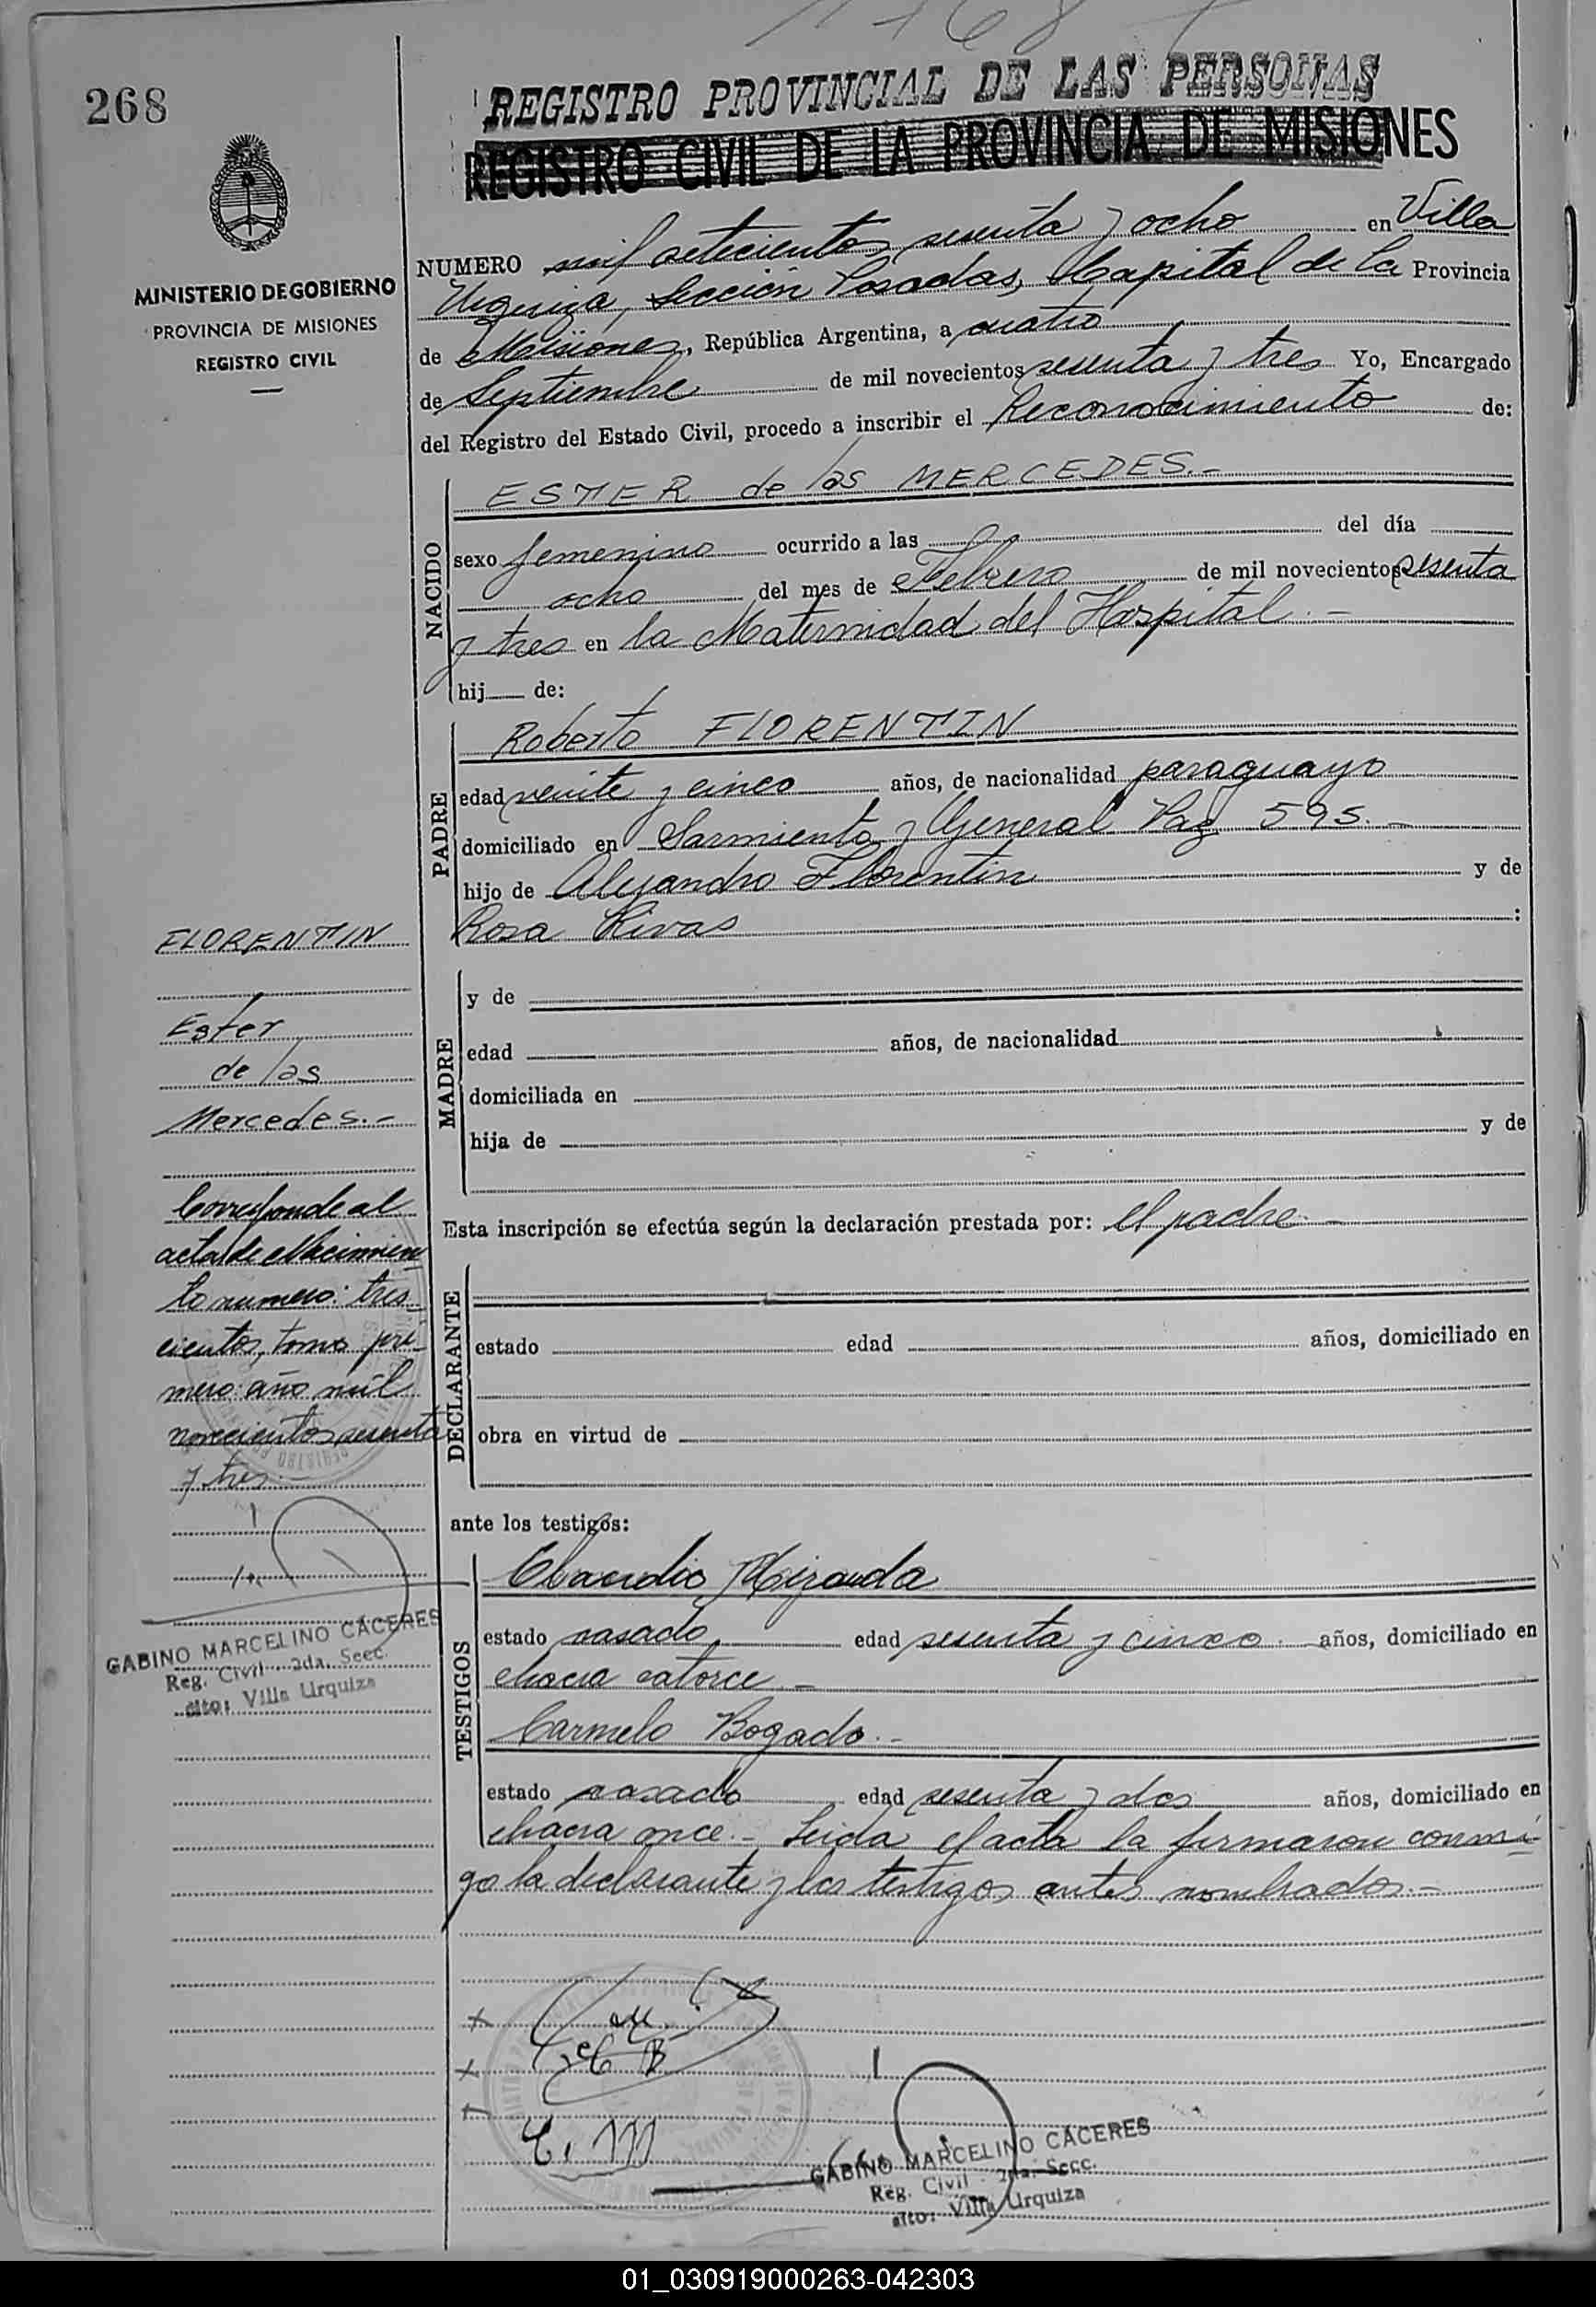 1768
268
REGISTRO PROVINCIAL DE LAS PERSONAS
REGISTRO CIVIL DE LA PROVINCIA DE MISIONES
MINISTERIO DE GOBIERNO
PROVINCIA DE MISIONES
REGISTRO CIVIL
NUMERO mil setecientos sesenta y ocho en Villa
Urquiza, Sección Posadas, Capital de la Provincia
de Misiones, República Argentina, a cuatro
de Septiembre de mil novecientos sesenta y tres Yo, Encargado
del Registro del Estado Civil, procedo a inscribir el Reconocimiento de:
NACIDO
ESTER de las MERCEDES.-
sexo femenino ocurrido a las del día
ocho del mes de Febrero de mil novecientos sesenta
y tres en la Maternidad del Hospital.-
hij de:
PADRE
Roberto FLORENTIN
edad veinte y cinco años, de nacionalidad paraguayo
domiciliado en Sarmiento y General Paz 595.-
hijo de Alejandro Florentin y de
Rosa Rivas :
MADRE
y de
edad años, de nacionalidad
domiciliada en
hija de y de
Esta inscripción se efectúa según la declaración prestada por: el padre.-
DECLARANTE
estado edad años, domiciliado en
obra en virtud de
ante los testigos:
TESTIGOS
Claudio Miranda
estado casado edad sesenta y cinco. años, domiciliado en
chacra catorce.-
Carmelo Bogado.-
estado casado edad sesenta y dos años, domiciliado en
chacra once.- Leida el acta la firmaron conmi-
go la declarante y los testigos antes nombrados.-
FLORENTIN
Ester
de las
Mercedes.-
Corresponde al
acta de Nacimien
to numero: tres-
cientos, tomo pri-
mero año mil
novecientos sesenta
y tres.-
GABINO MARCELINO CÁCERES
Reg. Civil 2da. Secc.
dito: Villa Urquiza
C. M
GABINO MARCELINO CÁCERES
Reg. Civil 2da. Secc.
dito: Villa Urquiza
01_030919000263-042303